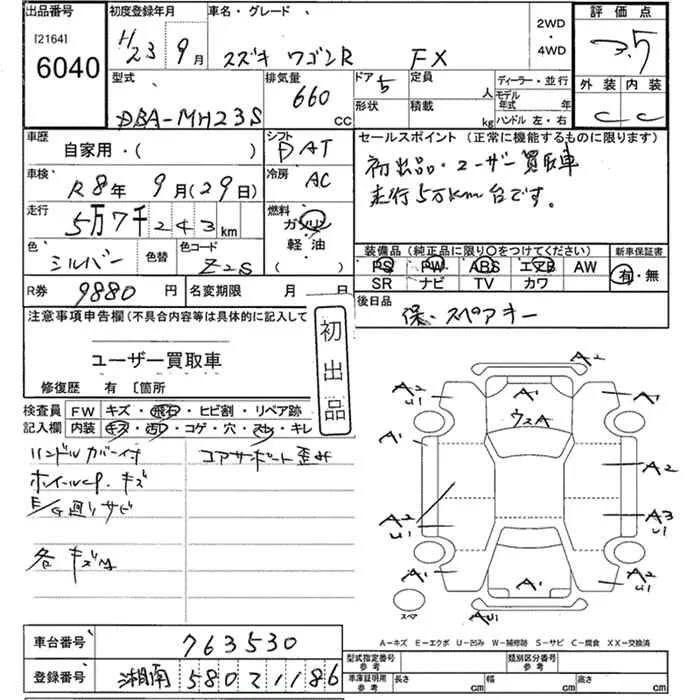 出品番号 初度登録年月 車名・グレード 評価点
[2164] 6040 H23 9月 スズキ ワゴンR FX 2WD・4WD 3.5
型式 排気量 ドア 5 定員 人 ディーラー・並行 外装 内装
DBA-MH23S 660 cc 形状 積載 kg モデル年式 年 ハンドル 左・右 C C
車歴 シフト セールスポイント(正常に機能するものに限ります)
自家用・( ) DAT 初出品・ユーザー買取車
車検 R8年 9月(29日) 冷房 AC 走行5万km台です。
走行 5万7千243km 燃料 ガソリン
色 シルバー 色替 色コード Z2S 軽油 ( )
装備品(純正品に限り○をつけてください) 新車保証書
PS PW ABS エアB AW 有・無
SR ナビ TV カワ
R券 9880円 名変期限 月 日 後日品
保・スペアキー
注意事項申告欄(不具合内容等は具体的に記入して
ユーザー買取車
初出品
修復歴 有 〔箇所
検査員記入欄 FW キズ・飛石・ヒビ割・リペア跡
内装 キズ・汚レ・コゲ・穴・スレ・キレ
ハンドルカバー付 コアサポート歪ミ
ホイールcp.キズ
E/G廻りサビ
各キズ
A1 ウスA A2 U1 A1 A2 A3 U1
スペ
A-キズ E-エクボ U-凹み W-補修跡 S-サビ C-腐食 XX-交換済
車台番号 763530
登録番号 湘南 580 ス 1186
型式指定番号 参考 類別区分番号 参考
車庫証明用 参考 長さ cm 幅 cm 高さ cm